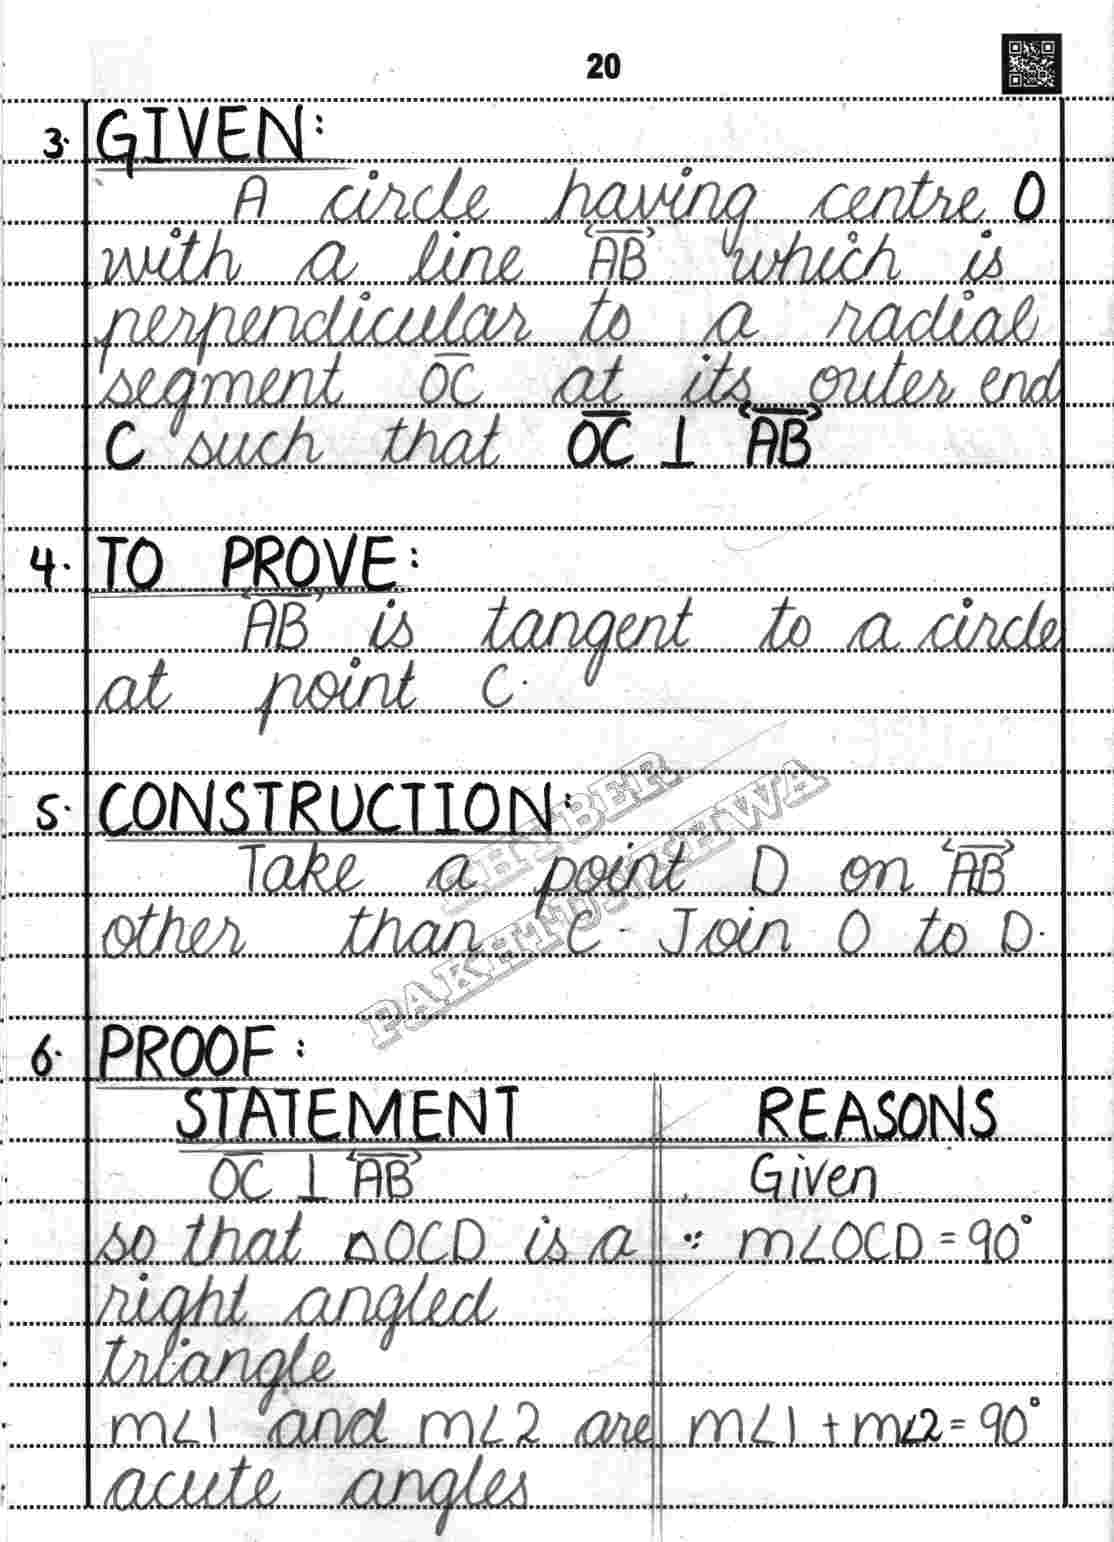 20
3. GIVEN:
A circle having centre O
with a line AB which is
perpendicular to a radial
segment OC at its outer end
C such that OC ⊥ AB
4. TO PROVE:
AB is tangent to a circle
at point C.
5. CONSTRUCTION:
Take a point D on AB
other than C. Join O to D.
KHYBER
PAKHTUNKHWA
6. PROOF:
STATEMENT REASONS
OC ⊥ AB Given
so that △OCD is a ∵ m∠OCD = 90°
right angled
triangle
m∠1 and m∠2 are m∠1 + m∠2 = 90°
acute angles